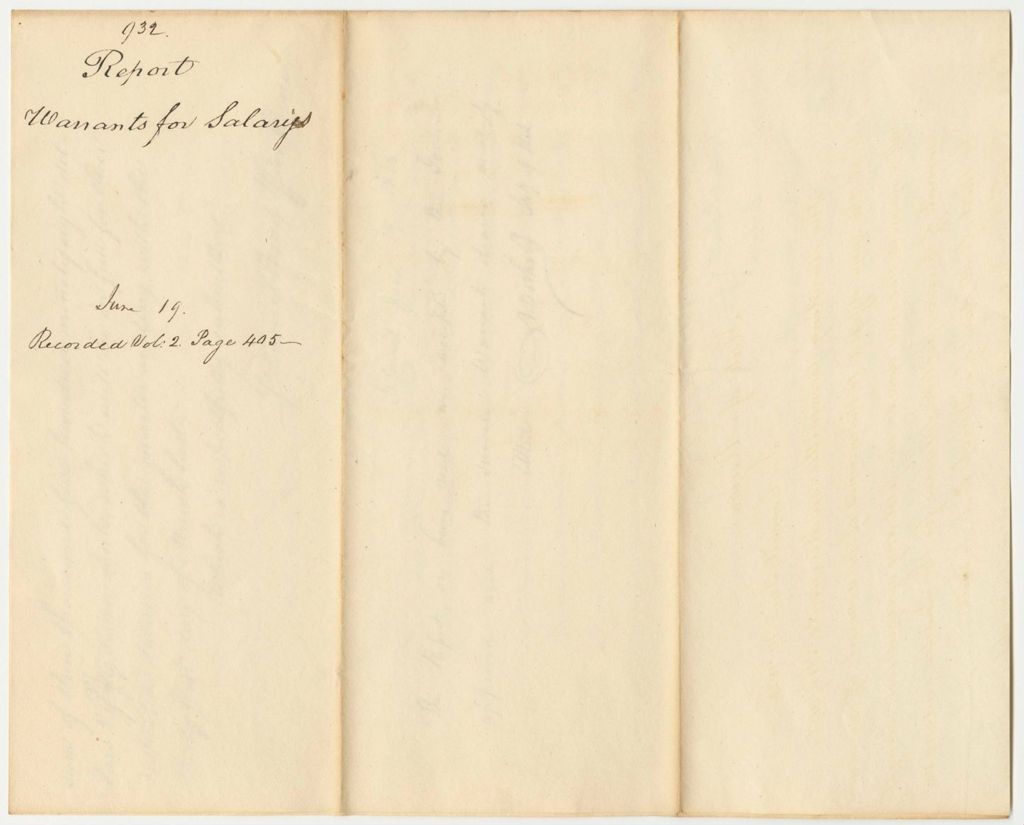 932.
Report
Warrants for Salaries
June 19.
Recorded Vol: 2. Page 405—